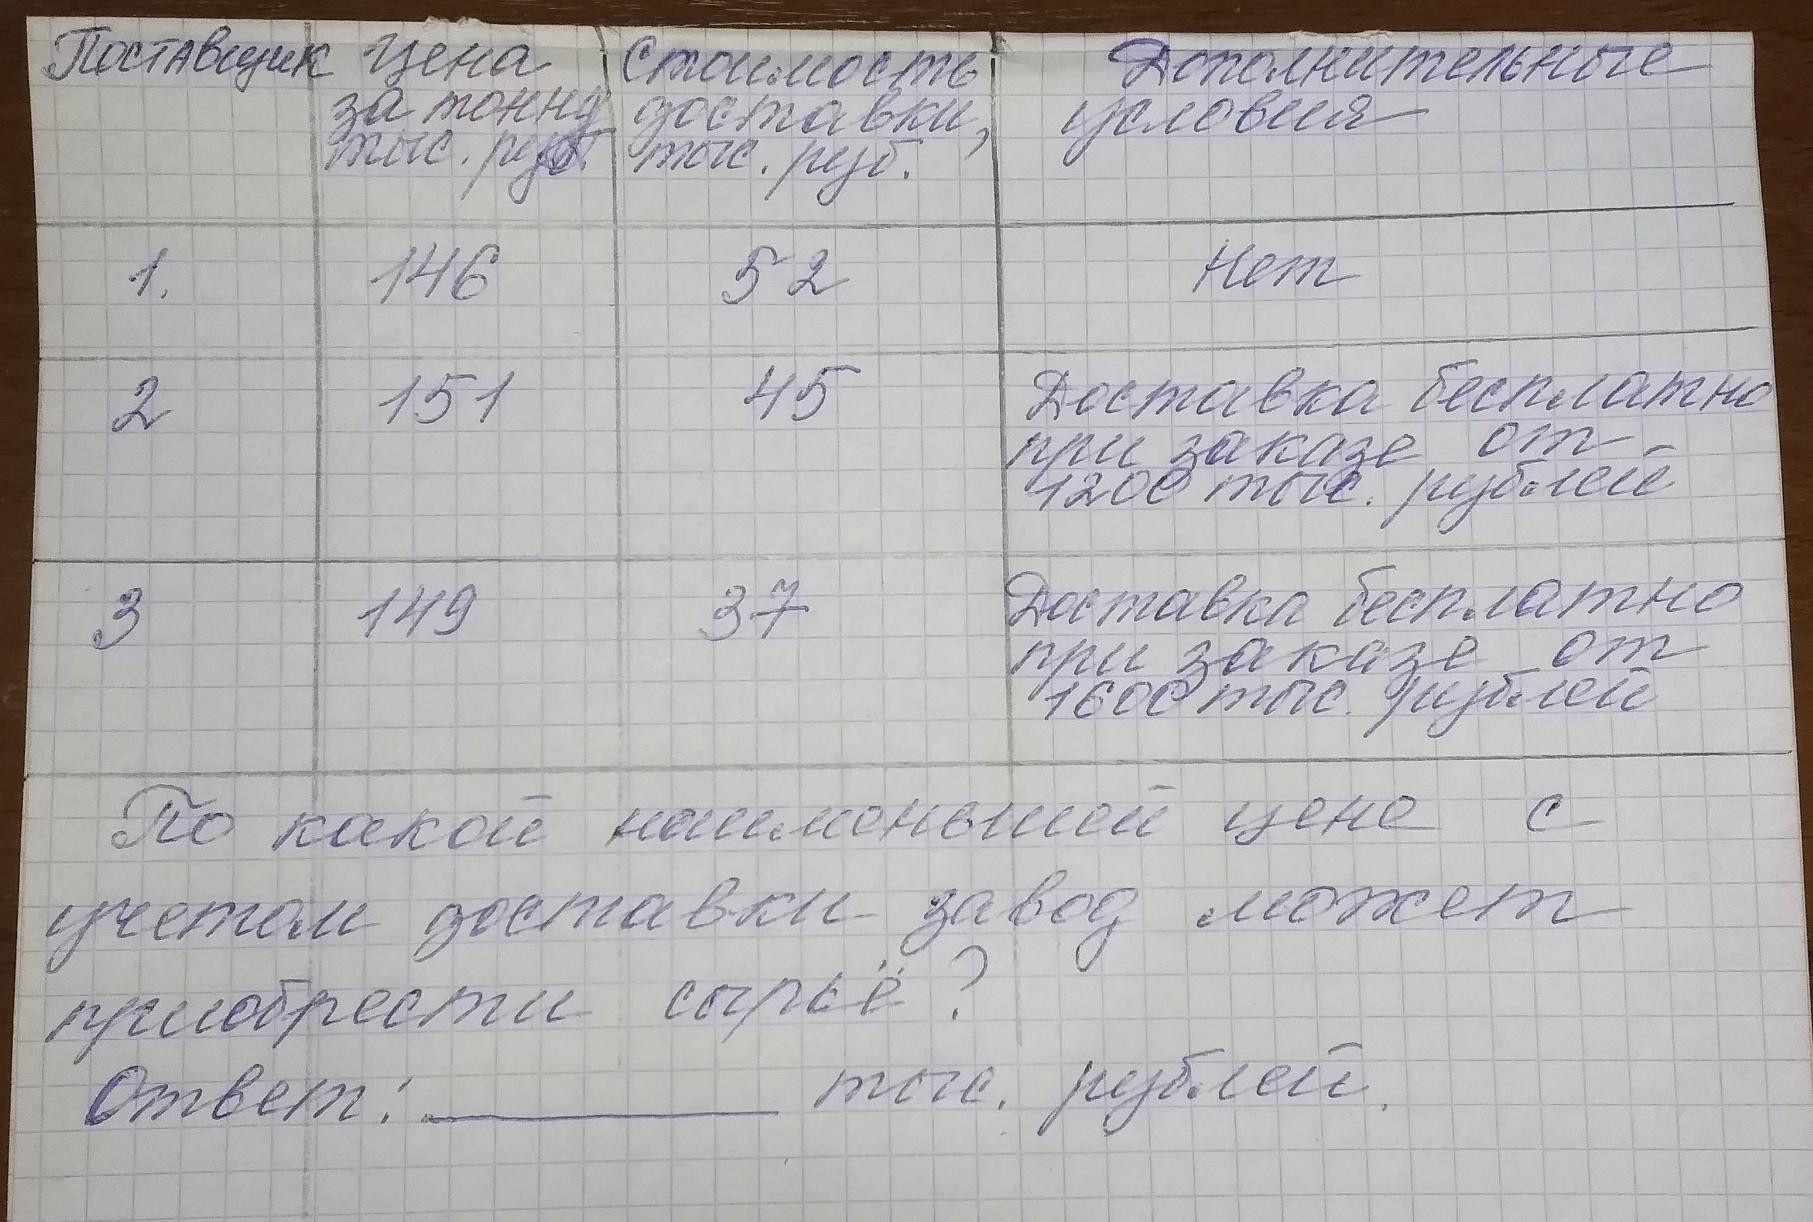 Поставщик Цена Стоимость Дополнительные
за тонну доставки, условия
тыс. руб. тыс. руб.
1. 146 52 Нет
2 151 45 Доставка бесплатно
при заказе от
1200 тыс. рублей
3 149 37 Доставка бесплатно
при заказе от
1600 тыс. рублей
По какой наименьшей цене с
учетом доставки завод может
приобрести сырьё?
Ответ: ________ тыс. рублей.